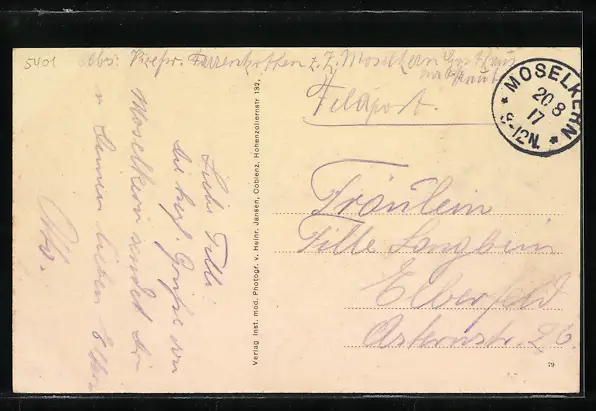 5401 Abs: Moselkern Gasthaus
Feldpost.
* MOSELKERN *
20 8
17
9-12N.
Liebe Tilli
die herzl. Grüße von
Moselkern sendet dir
u deinen lieben Eltern
Verlag Inst. mod. Photogr. v. Heinr. Jansen, Coblenz, Hohenzollernstr 132.
Fräulein
Tille Langbein
Elberfeld
Asternstr. 26
79